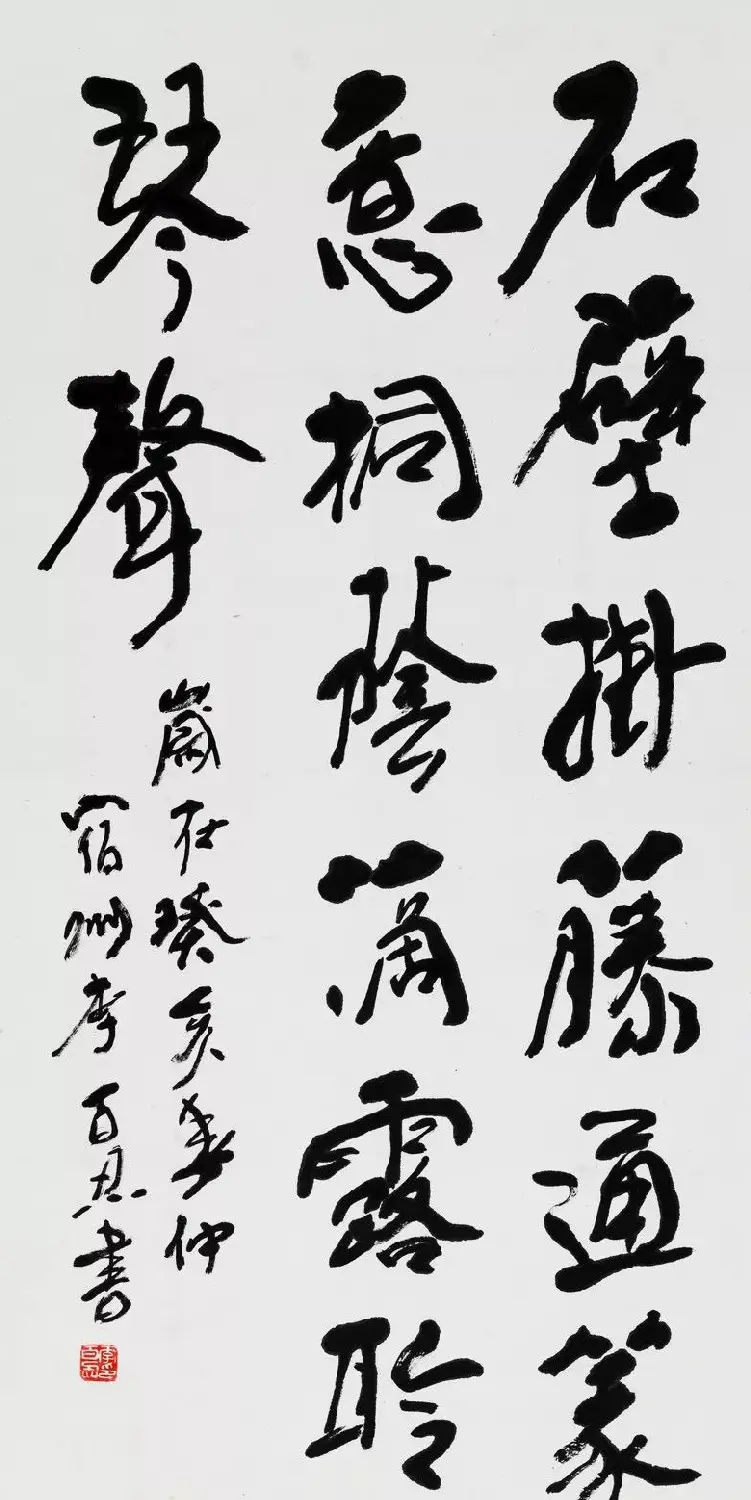 石壁掛藤通篆
意桐蔭滴露聆
琴聲
歲在癸亥春仲
宿州李百忍書